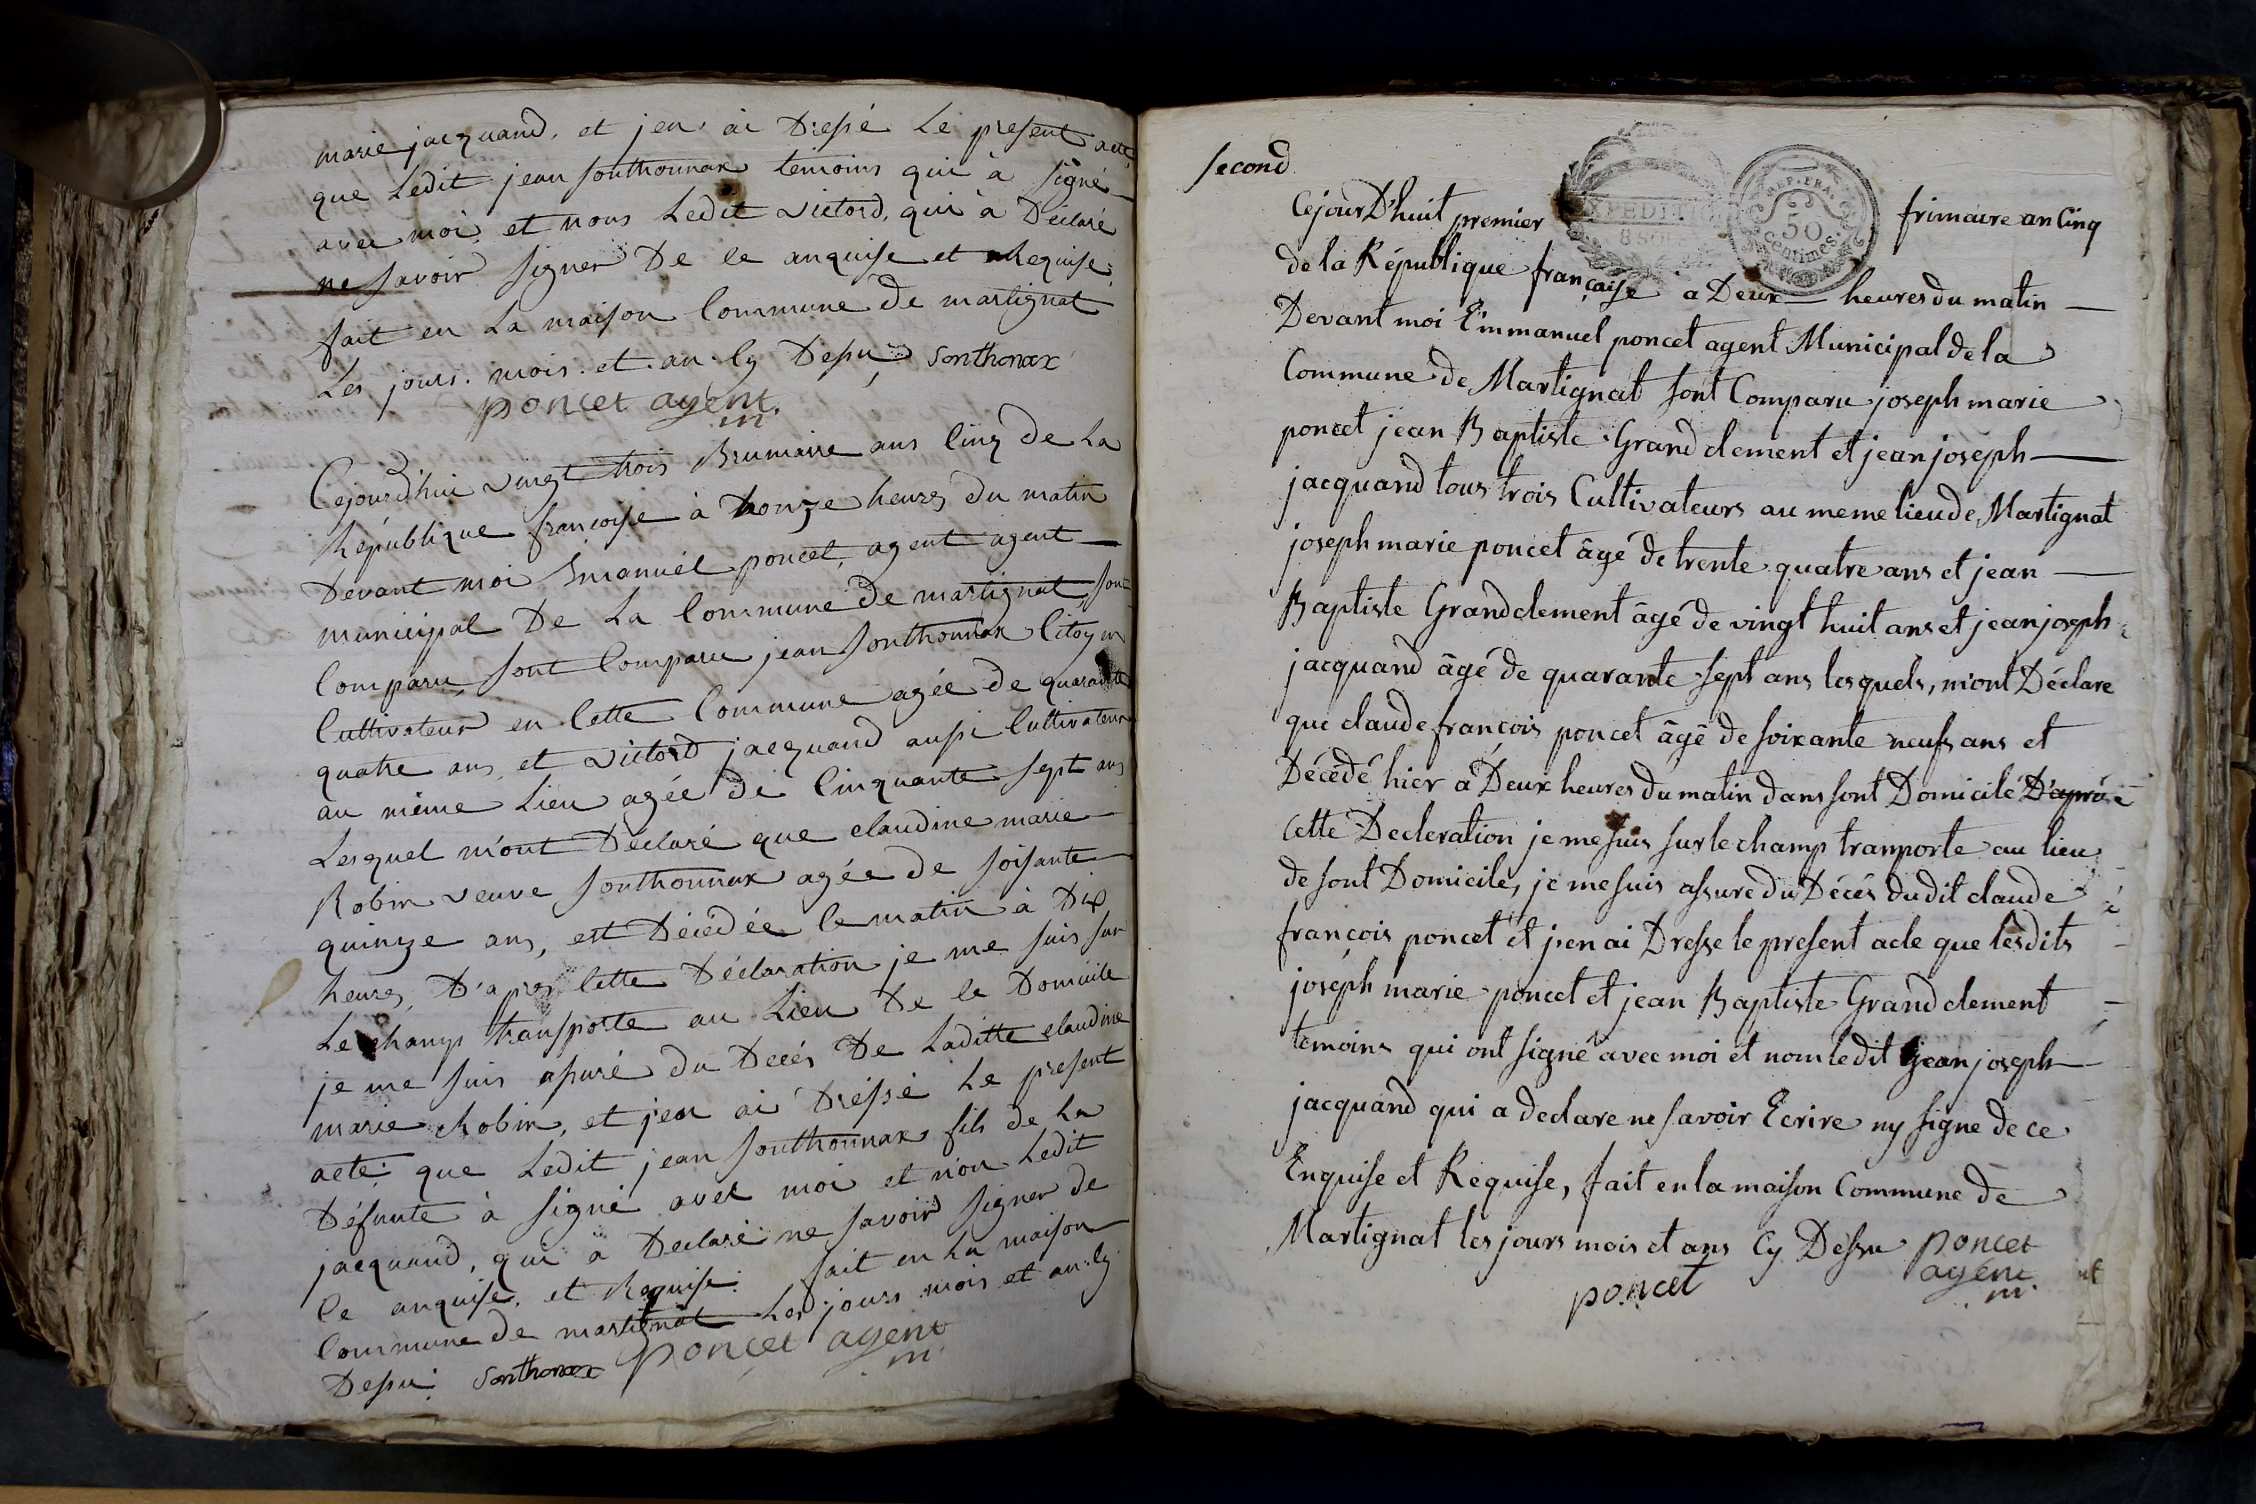 marie jacquand. et jen ai Dressé Le present acte
que Ledit jean sonthonnax temoins qui à signé
avec moi, et nous Ledit victord. qui à Déclaré
ne savoir signer De ce anquise et Requise.
fait en La maison Commune de martignat
Les jours. mois. et. an Cy Dessu Sonthonax
poncet agent.
m
Cejourd'hui vingt trois Brumaire ans Cinq De La
République françoise à honze heures Du matin
Devant moi Emanuel poncet, agent agent
municipal De La Commune de martignat sont
Comparu sont Comparu jean sonthonnax Citoyen
Cultivateur en Cette Commune agée de quarante
quatre ans, et victord jacquand aussi Cultivateur
au même Lieu agée de Cinquante sept ans
Lesquel m'ont Déclaré que claudine marie
Robin veuve sonthonnax agée de soisante
quinze ans, est Décédée ce matin à Dix
heures, D'apres Cette Déclaration je me suis sur
Le champ transporte au Lieu De ce Domicile
je me suis assuré du Decés De Laditte claudine
marie Robin, et j'en ai Dressé Le present
acte. que Ledit jean sonthonnax fils de La
Défunte à signé avec moi et non Ledit
jacquand, qui a Declaré ne savoir signer de
Ce anquise, et Requise. fait en La maison
Commune de martignat Les jours mois et an Cy
Dessu. Sonthonax poncet agent
m.
second
Cejour D'huit premier frimaire an Cinq
EXPEDITION
8 SOLS
REP. FRA.
50
centimes
de la République française a Deux heures du matin
Devant moi Emmanuel poncet agent Municipal de la
Commune de Martignat sont Comparu joseph marie
poncet jean Baptiste Grand clement et jean joseph
jacquand tous trois Cultivateurs au meme lieu de Martignat
joseph marie poncet âgé de trente quatre ans et jean
Baptiste Grandclement âgé de vingt huit ans et jean joseph
jacquand âgé de quarante sept ans lesquels, m'ont Déclare
que claude françois poncet âgé de soixante neufs ans et
Décédé hier a Deux heures du matin dans sont Domicilé D'aprés
Cette Decleration je me suis sur le champ tranporte au lieu
de sont Domicile, je me suis assure du Décés dudit claude
françois poncet et j'en ai Dresse le present acte que lesdits
joseph marie poncet et jean Baptiste Grand clement
temoins qui ont signé avec moi et nom ledit jean joseph
jacquand qui a declare ne savoir Ecrire ny signe de ce
Enquise et Requise, fait en la maison Commune de
Martignat les jours mois et ans Cy Dessu poncet
poncet agent
m.